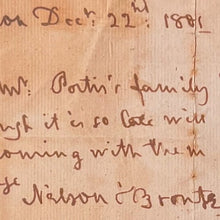 on Decr. 22d. 1801
mr. Portis's family
ugh it is so late will
coming with them
Nelson & Bronte